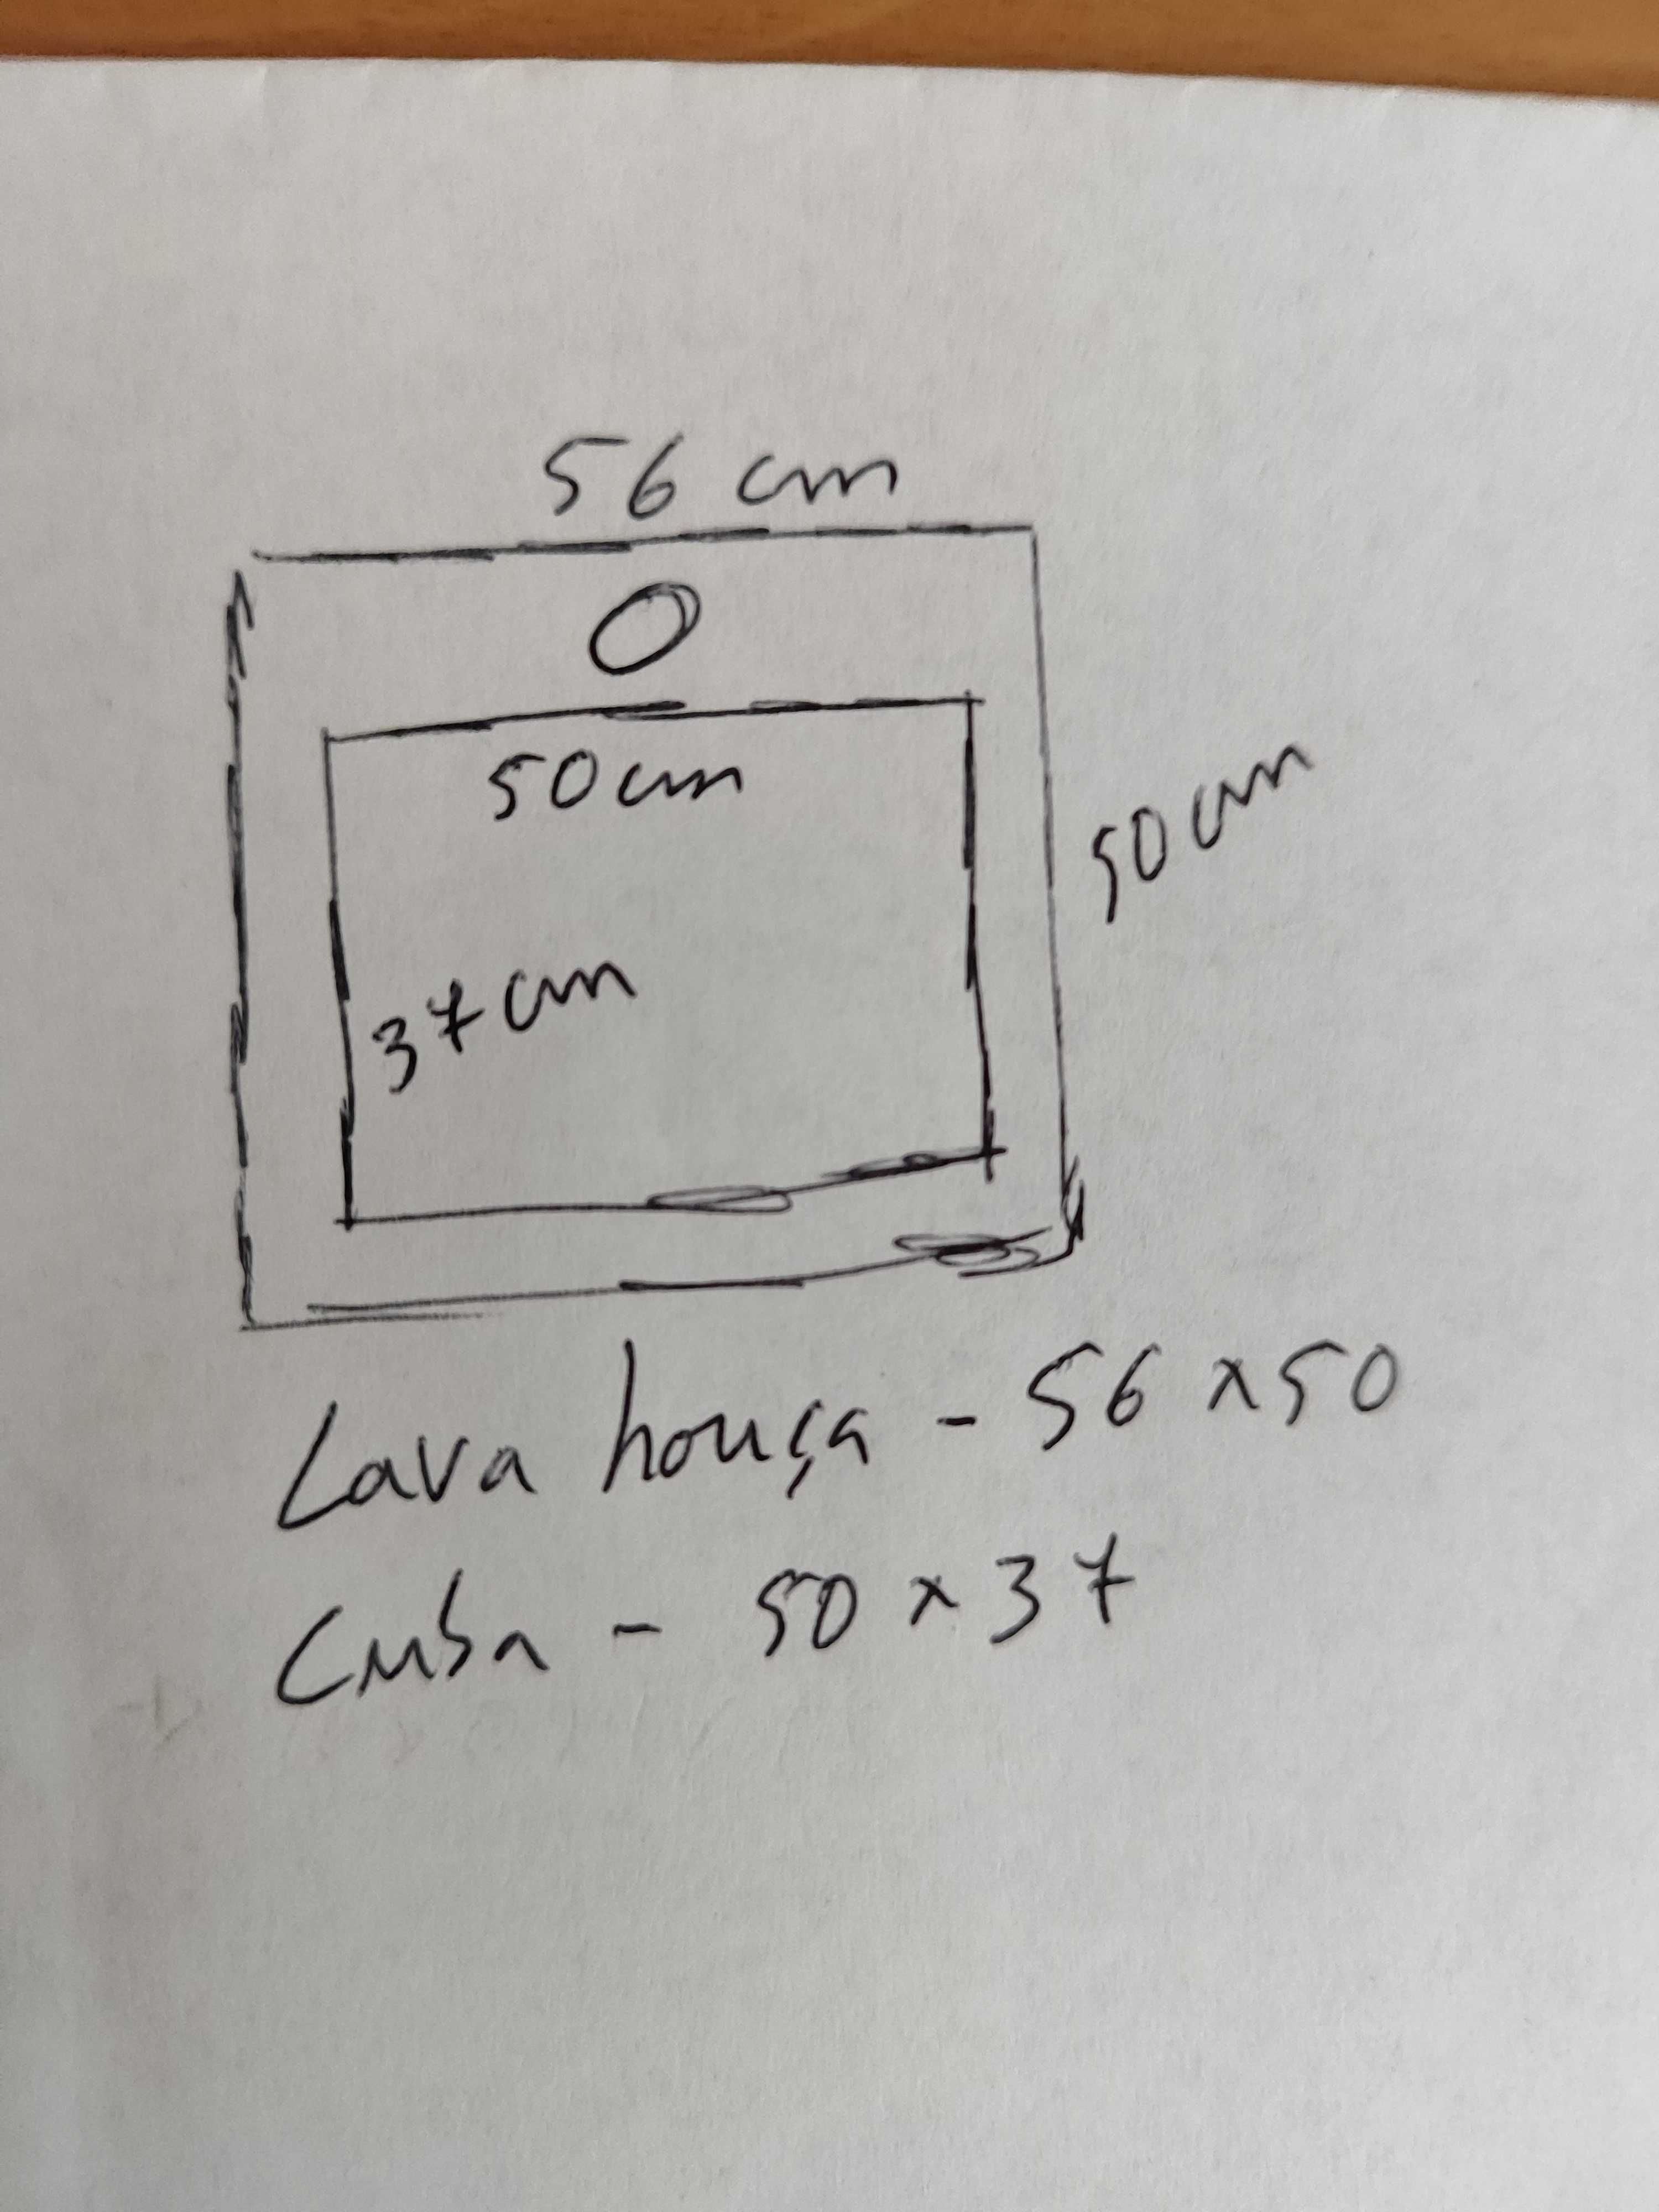 56 cm
50 cm
50 cm
37 cm
Lava houça - 56 x 50
Cuba - 50 x 37